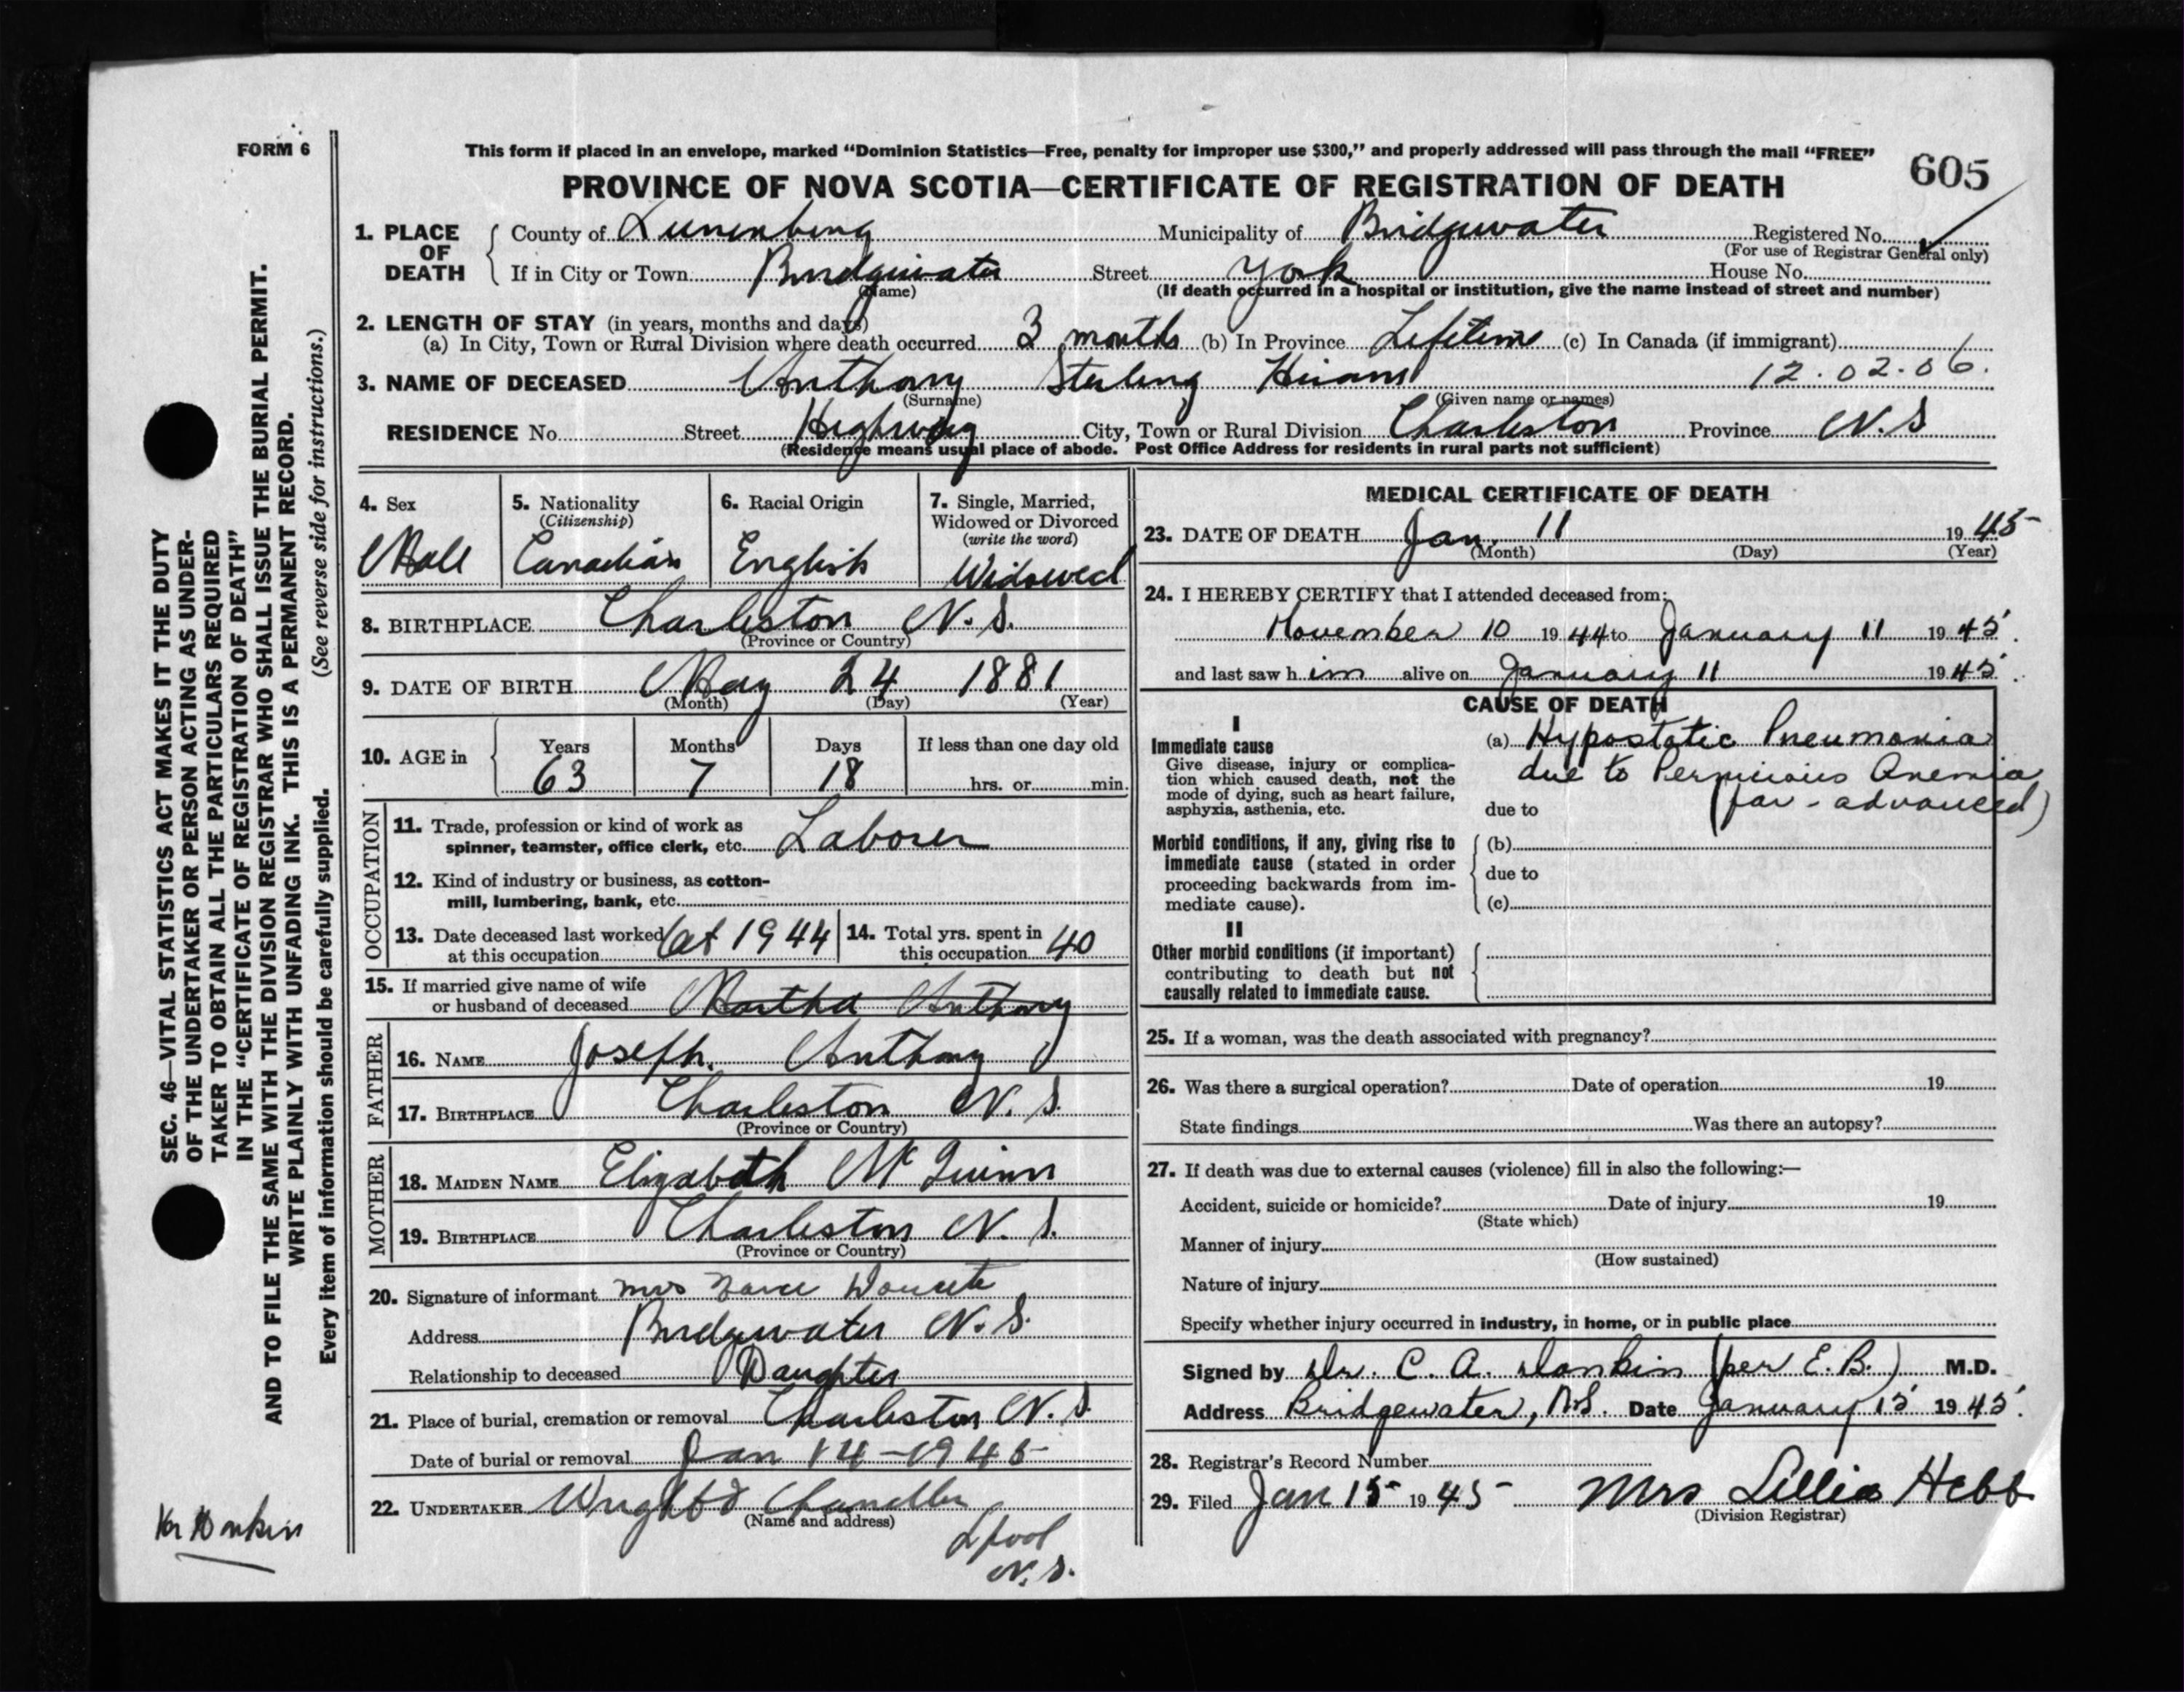 FORM 6
This form if placed in an envelope, marked “Dominion Statistics—Free, penalty for improper use $300,” and properly addressed will pass through the mail “FREE”
605
PROVINCE OF NOVA SCOTIA—CERTIFICATE OF REGISTRATION OF DEATH
1. PLACE OF DEATH
County of Lunenburg Municipality of Bridgewater Registered No.
(For use of Registrar General only)
If in City or Town Bridgewater Street York House No.
(Name) (If death occurred in a hospital or institution, give the name instead of street and number)
2. LENGTH OF STAY (in years, months and days)
(a) In City, Town or Rural Division where death occurred 3 months (b) In Province Lifetime (c) In Canada (if immigrant)
3. NAME OF DECEASED Anthony Sterling Hiram 12.02.06.
(Surname) (Given name or names)
RESIDENCE No. Street Highway City, Town or Rural Division Charleston Province N.S
(Residence means usual place of abode. Post Office Address for residents in rural parts not sufficient)
4. Sex
Male
5. Nationality
(Citizenship)
Canadian
6. Racial Origin
English
7. Single, Married,
Widowed or Divorced
(write the word)
Widowed
8. BIRTHPLACE Charleston N.S.
(Province or Country)
9. DATE OF BIRTH May 24 1881
(Month) (Day) (Year)
10. AGE in
Years Months Days If less than one day old
63 7 18 hrs. or min.
OCCUPATION
11. Trade, profession or kind of work as
spinner, teamster, office clerk, etc. Laborer
12. Kind of industry or business, as cotton-
mill, lumbering, bank, etc.
13. Date deceased last worked
at this occupation 1944
14. Total yrs. spent in
this occupation 40
15. If married give name of wife
or husband of deceased Martha Anthony
FATHER
16. NAME Joseph Anthony
17. BIRTHPLACE Charleston N.S.
(Province or Country)
MOTHER
18. MAIDEN NAME Elizabeth McGuinn
19. BIRTHPLACE Charleston N.S.
(Province or Country)
20. Signature of informant Mrs
Address Bridgewater N.S.
Relationship to deceased Daughter
21. Place of burial, cremation or removal Charleston N.S.
Date of burial or removal Jan 14-1945
22. UNDERTAKER Chandler
(Name and address)
Lpool
N.S.
MEDICAL CERTIFICATE OF DEATH
23. DATE OF DEATH Jan. 11 1945
(Month) (Day) (Year)
24. I HEREBY CERTIFY that I attended deceased from:
November 10 1944 to January 11 1945.
and last saw him alive on January 11 1945.
CAUSE OF DEATH
I
Immediate cause
Give disease, injury or complica-
tion which caused death, not the
mode of dying, such as heart failure,
asphyxia, asthenia, etc.
(a) Hypostatic Pneumonia
due to Pernicious Anemia
due to (far-advanced)
Morbid conditions, if any, giving rise to
immediate cause (stated in order
proceeding backwards from im-
mediate cause).
(b)
due to
(c)
II
Other morbid conditions (if important)
contributing to death but not
causally related to immediate cause.
25. If a woman, was the death associated with pregnancy?
26. Was there a surgical operation? Date of operation 19
State findings Was there an autopsy?
27. If death was due to external causes (violence) fill in also the following:—
Accident, suicide or homicide? Date of injury 19
(State which)
Manner of injury
(How sustained)
Nature of injury
Specify whether injury occurred in industry, in home, or in public place
Signed by Dr. C. A. Donkin (per E.B.) M.D.
Address Bridgewater, N.S. Date January 15 1945.
28. Registrar's Record Number
29. Filed Jan 15 1945 Mrs Lillia Hebb
(Division Registrar)
SEC. 46—VITAL STATISTICS ACT MAKES IT THE DUTY
OF THE UNDERTAKER OR PERSON ACTING AS UNDER-
TAKER TO OBTAIN ALL THE PARTICULARS REQUIRED
IN THE “CERTIFICATE OF REGISTRATION OF DEATH”
AND TO FILE THE SAME WITH THE DIVISION REGISTRAR WHO SHALL ISSUE THE BURIAL PERMIT.
WRITE PLAINLY WITH UNFADING INK. THIS IS A PERMANENT RECORD.
Every item of information should be carefully supplied. (See reverse side for instructions.)